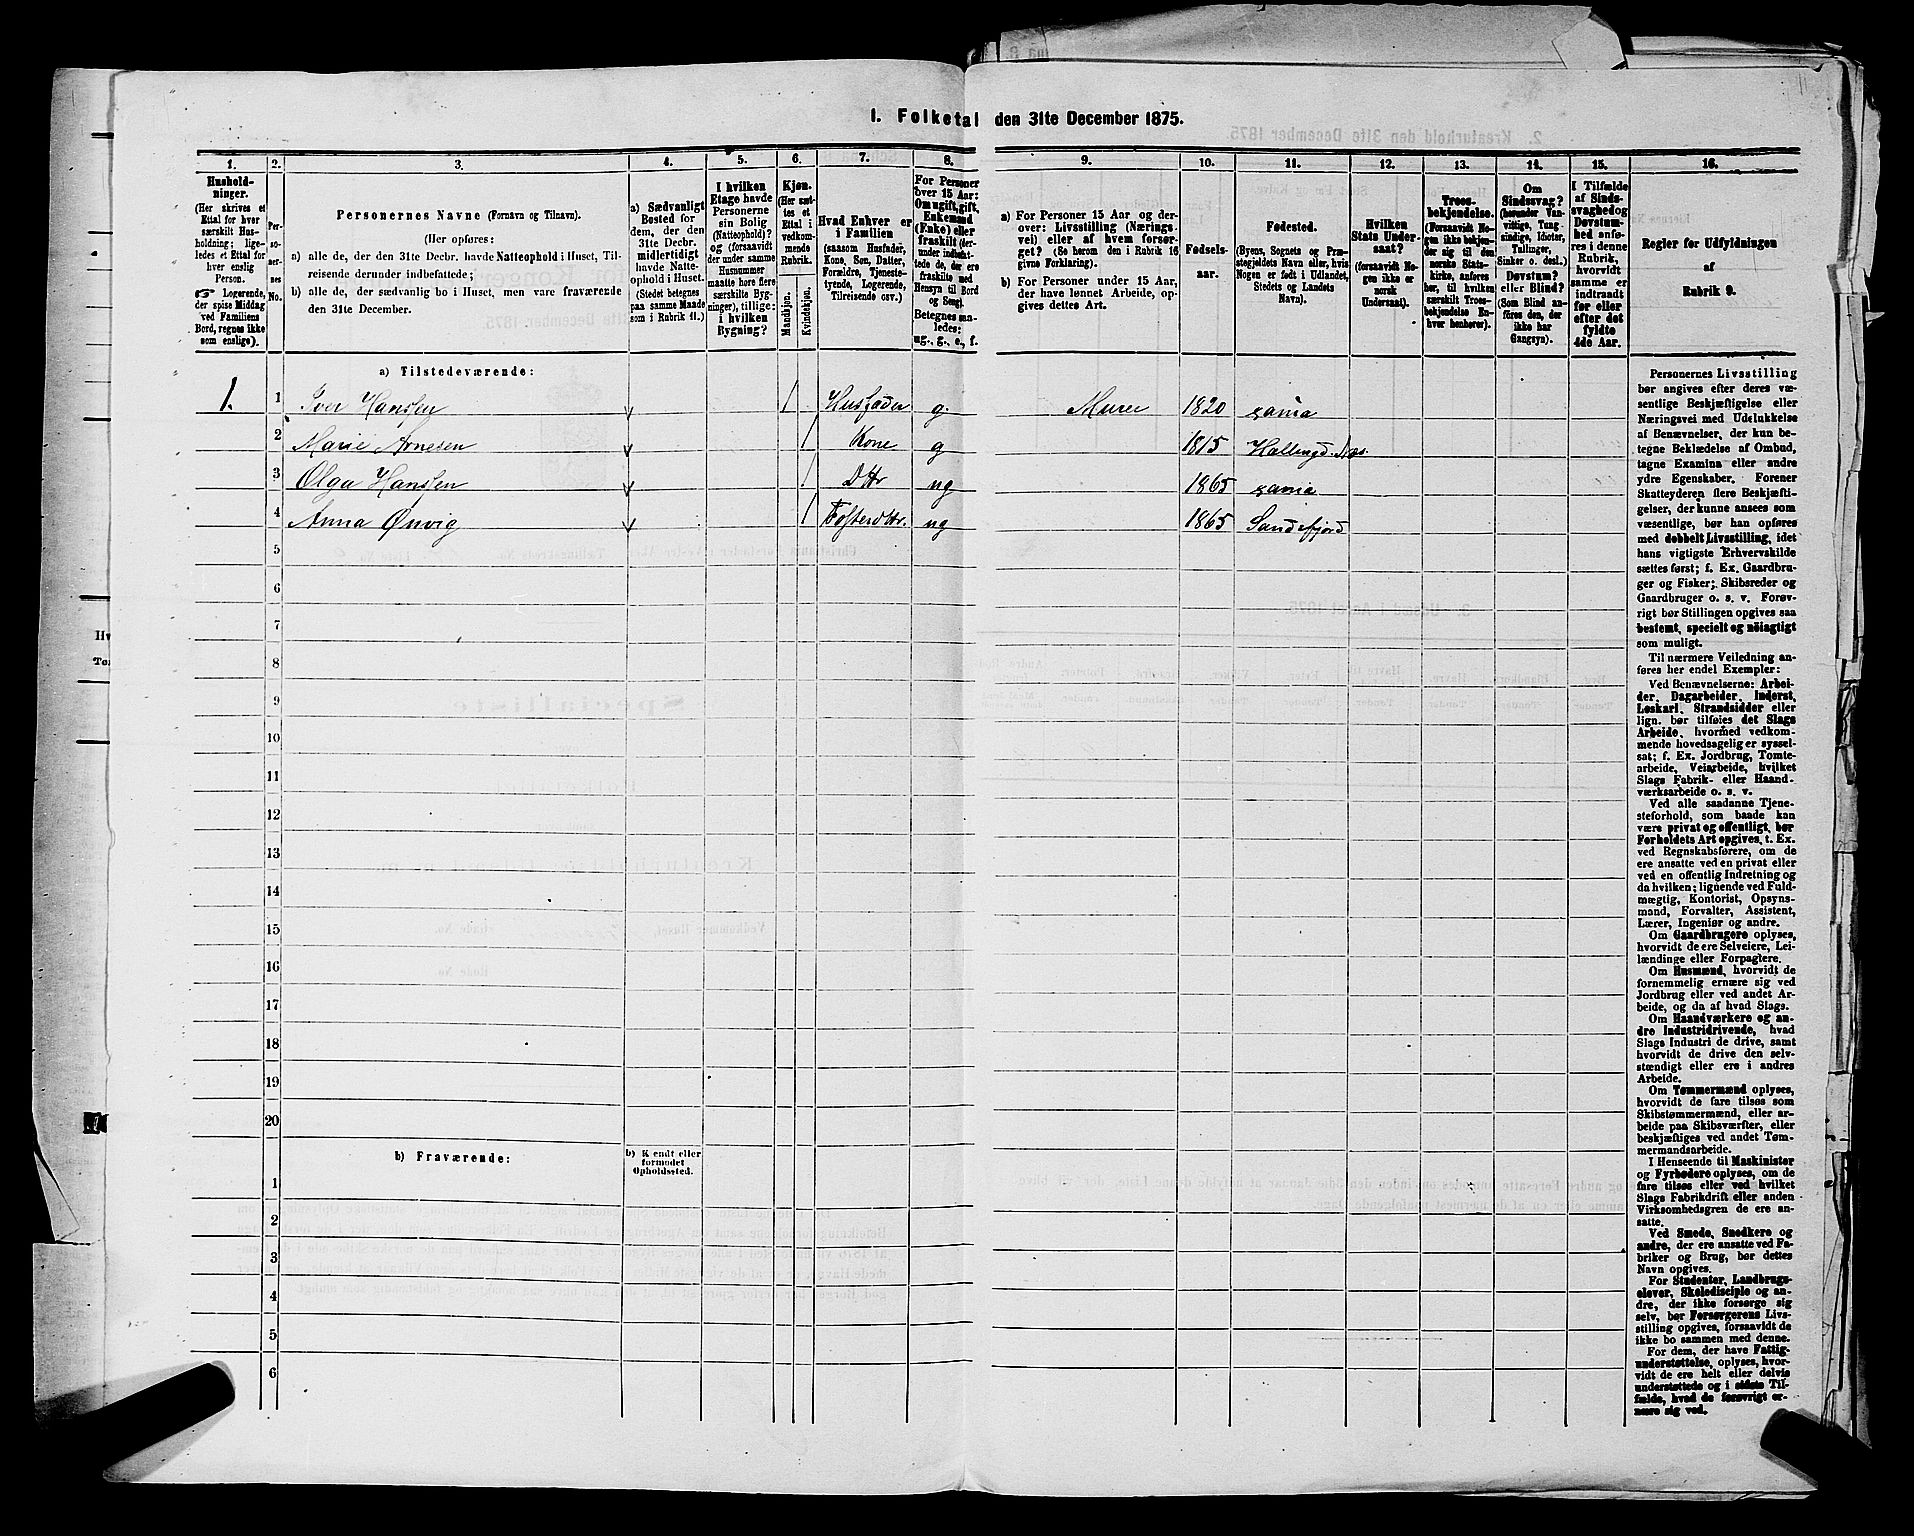 1. Folketal den 31te December 1875.
1. 2. 3. 4. 5. 6. 7. 8. 9. 10. 11. 12. 13. 14. 15. 16.
Husholdninger.
(Her skrives et
Ettal for hver
særskilt Husholdning;
ligeledes et Ettal for
hver enslig
Person.
Logerende,
der spise Middag
ved Familiens
Bord, regnes ikke
som enslige).
Personernes No.
Personernes Navne (Fornavn og Tilnavn).
(Her opføres:
a) alle de, der den 31te Decbr. havde Natteophold i Huset, Tilreisende derunder indbefattede;
b) alle de, der sædvanlig bo i Huset, men vare fraværende
den 31te December.
a) Sædvanligt
Bosted for
dem, der den
31te Decbr.
midlertidigt
havde Natteophold i Huset.
(Stedet betegnes
paa samme Maade
som i Rubrik 11.)
I hvilken
Etage havde
Personerne
sin Bolig
(Natteophold)?
og (forsaavidt
der under samme
Husnummer
maatte høre flere
særskilte Bygninger), tillige:
i hvilken
Bygning?
Kjøn.
(Her sættes et
Ettal i
vedkommende
Rubrik.
Mandkjøn.
Kvindekjøn.
Hvad Enhver er
i Familien
(saasom Husfader,
Kone, Søn, Datter,
Forældre, Tjenestetyende, Logerende,
Tilreisende osv.)
For Personer
over 15 Aar:
Om ugift, gift,
Enkemand
(Enke) eller
fraskilt (derunder
de, der ere
fraskilte med
Hensyn til Bord
og Seng).
Betegnes saaledes:
ug., g., e., f.
a) For Personer 15 Aar og derover: Livsstilling (Næringsvei) eller af hvem forsørget? (Se herom den i Rubrik 16
givne Forklaring).
b) For Personer under 15 Aar,
der have lønnet Arbeide, opgives dettes Art.
Fødselsaar.
Fødested.
(Byens, Sognets og Præstegjeldets Navn eller, hvis
Nogen er født i Udlandet,
Stedets og Landets
Navn).
Hvilken
Stats Undersaat?
(forsaavidt Nogen ikke er
norsk
Undersaat).
Troesbekjendelse.
(Forsaavidt Nogen ikke bekjender sig til den
norske Statskirke, anføres
her, til hvilken
særskilt Troesbekjendelse Enhver henhører).
Om
Sindssvag?
(herunder Vanvittige, Tungsindige, Idioter,
Tullinger,
Sinker o. desl.).
Døvstum?
eller Blind?
(Som Blind anføres den, der
ikke har
Gangsyn).
I Tilfælde
af Sindssvaghed og
Døvstumhed anføres i denne
Rubrik,
hvorvidt
samme er
indtraadt
før eller
efter det
fyldte
4de Aar.
Regler for Udfyldningen
af
Rubrik 9.
a) Tilstedeværende:
1. 1 Iver Hansen 1 Husfader g. Murer 1820 ania
2 Marie Arnesen 1 Kone g 1815 Hallingd. Næs.
3 Olga Hansen 1 Dttr ug 1865 ania
4 Anna Ønvig 1 Fosterdttr. ug 1865 Sandefjord
5
6
7
8
9
10
11
12
13
14
15
16
17
18
19
20
b) Fraværende:
b) Kjendt eller
formodet
Opholdssted.
1
2
3
4
5
6
Personernes Livsstilling
bør angives efter deres væsentlige Beskjæftigelse eller
Næringsvei med Udelukkelse
af Benævnelser, der kun betegne Beklædelse af Ombud,
tagne Examina eller andre
ydre Egenskaber. Forener
Skatteyderen flere Beskjæftigelser, der kunne ansees som
væsentlige, bør han opføres
med dobbelt Livsstilling, idet
hans vigtigste Erhvervskilde
sættes først; f. Ex. Gaardbruger og Fisker; Skibsreder og
Gaardbruger o. s. v. Forøvrigt bør Stillingen opgives saa
bestemt, specielt og nøiagtigt
som muligt.
Til nærmere Veiledning anføres her endel Exempler:
Ved Benævnelserne: Arbeider, Dagarbeider, Inderst,
Løskarl, Strandsidder eller
lign. bør tilføies det Slags
Arbeide, hvormed vedkommende hovedsagelig er sysselsat; f. Ex. Jordbrug, Tomtearbeide, Veiarbeide, hvilket
Slags Fabrik- eller Haandværksarbeide o. s. v.
Ved alle saadanne Tjenesteforhold, som baade kan
være privat og offentligt, bør
Forholdets Art opgives, t. Ex.
ved Regnskabsførere, om de
ere ansatte ved en privat eller
ved en offentlig Indretning og
da hvilken; lignende ved Fuldmægtig, Kontorist, Opsynsmand, Forvalter, Assistent,
Lærer, Ingeniør og andre.
Om Gaardbrugere oplyses,
hvorvidt de ere Selveiere, Leilændinge eller Forpagtere.
Om Husmænd, hvorvidt de
fornemmelig ernære sig ved
Jordbrug eller ved andet Arbeide, og da af hvad Slags.
Om Haandværkere og andre Industridrivende, hvad
Slags Industri de drive, samt
hvorvidt de drive den selvstændigt eller ere i andres
Arbeide.
Om Tømmermænd oplyses,
hvorvidt de fare tilsøs som
Skibstømmermænd, eller arbeide paa Skibsværfter, eller
beskjæftiges ved andet Tømmermandsarbeide.
I Henseende til Maskinister
og Fyrbødere oplyses, om de
fare tilsøs eller ved hvilket
Slags Fabrikdrift eller anden
Virksomhedsgren de ere ansatte.
Ved Smede, Snedkere og
andre, der ere ansatte ved Fabriker og Brug, bør dettes
Navn opgives.
For Studenter, Landbrugselever, Skoledisciple og andre, der ikke forsørge sig
selv, bør Forsørgerens Livsstilling opgives, forsaavidt de
ikke bo sammen med denne.
For dem, der have Fattigunderstøttelse, oplyses, hvorvidt de ere helt eller delvis
understøttede og i sidste Tilfælde, hvad de forøvrigt ernære sig ved.